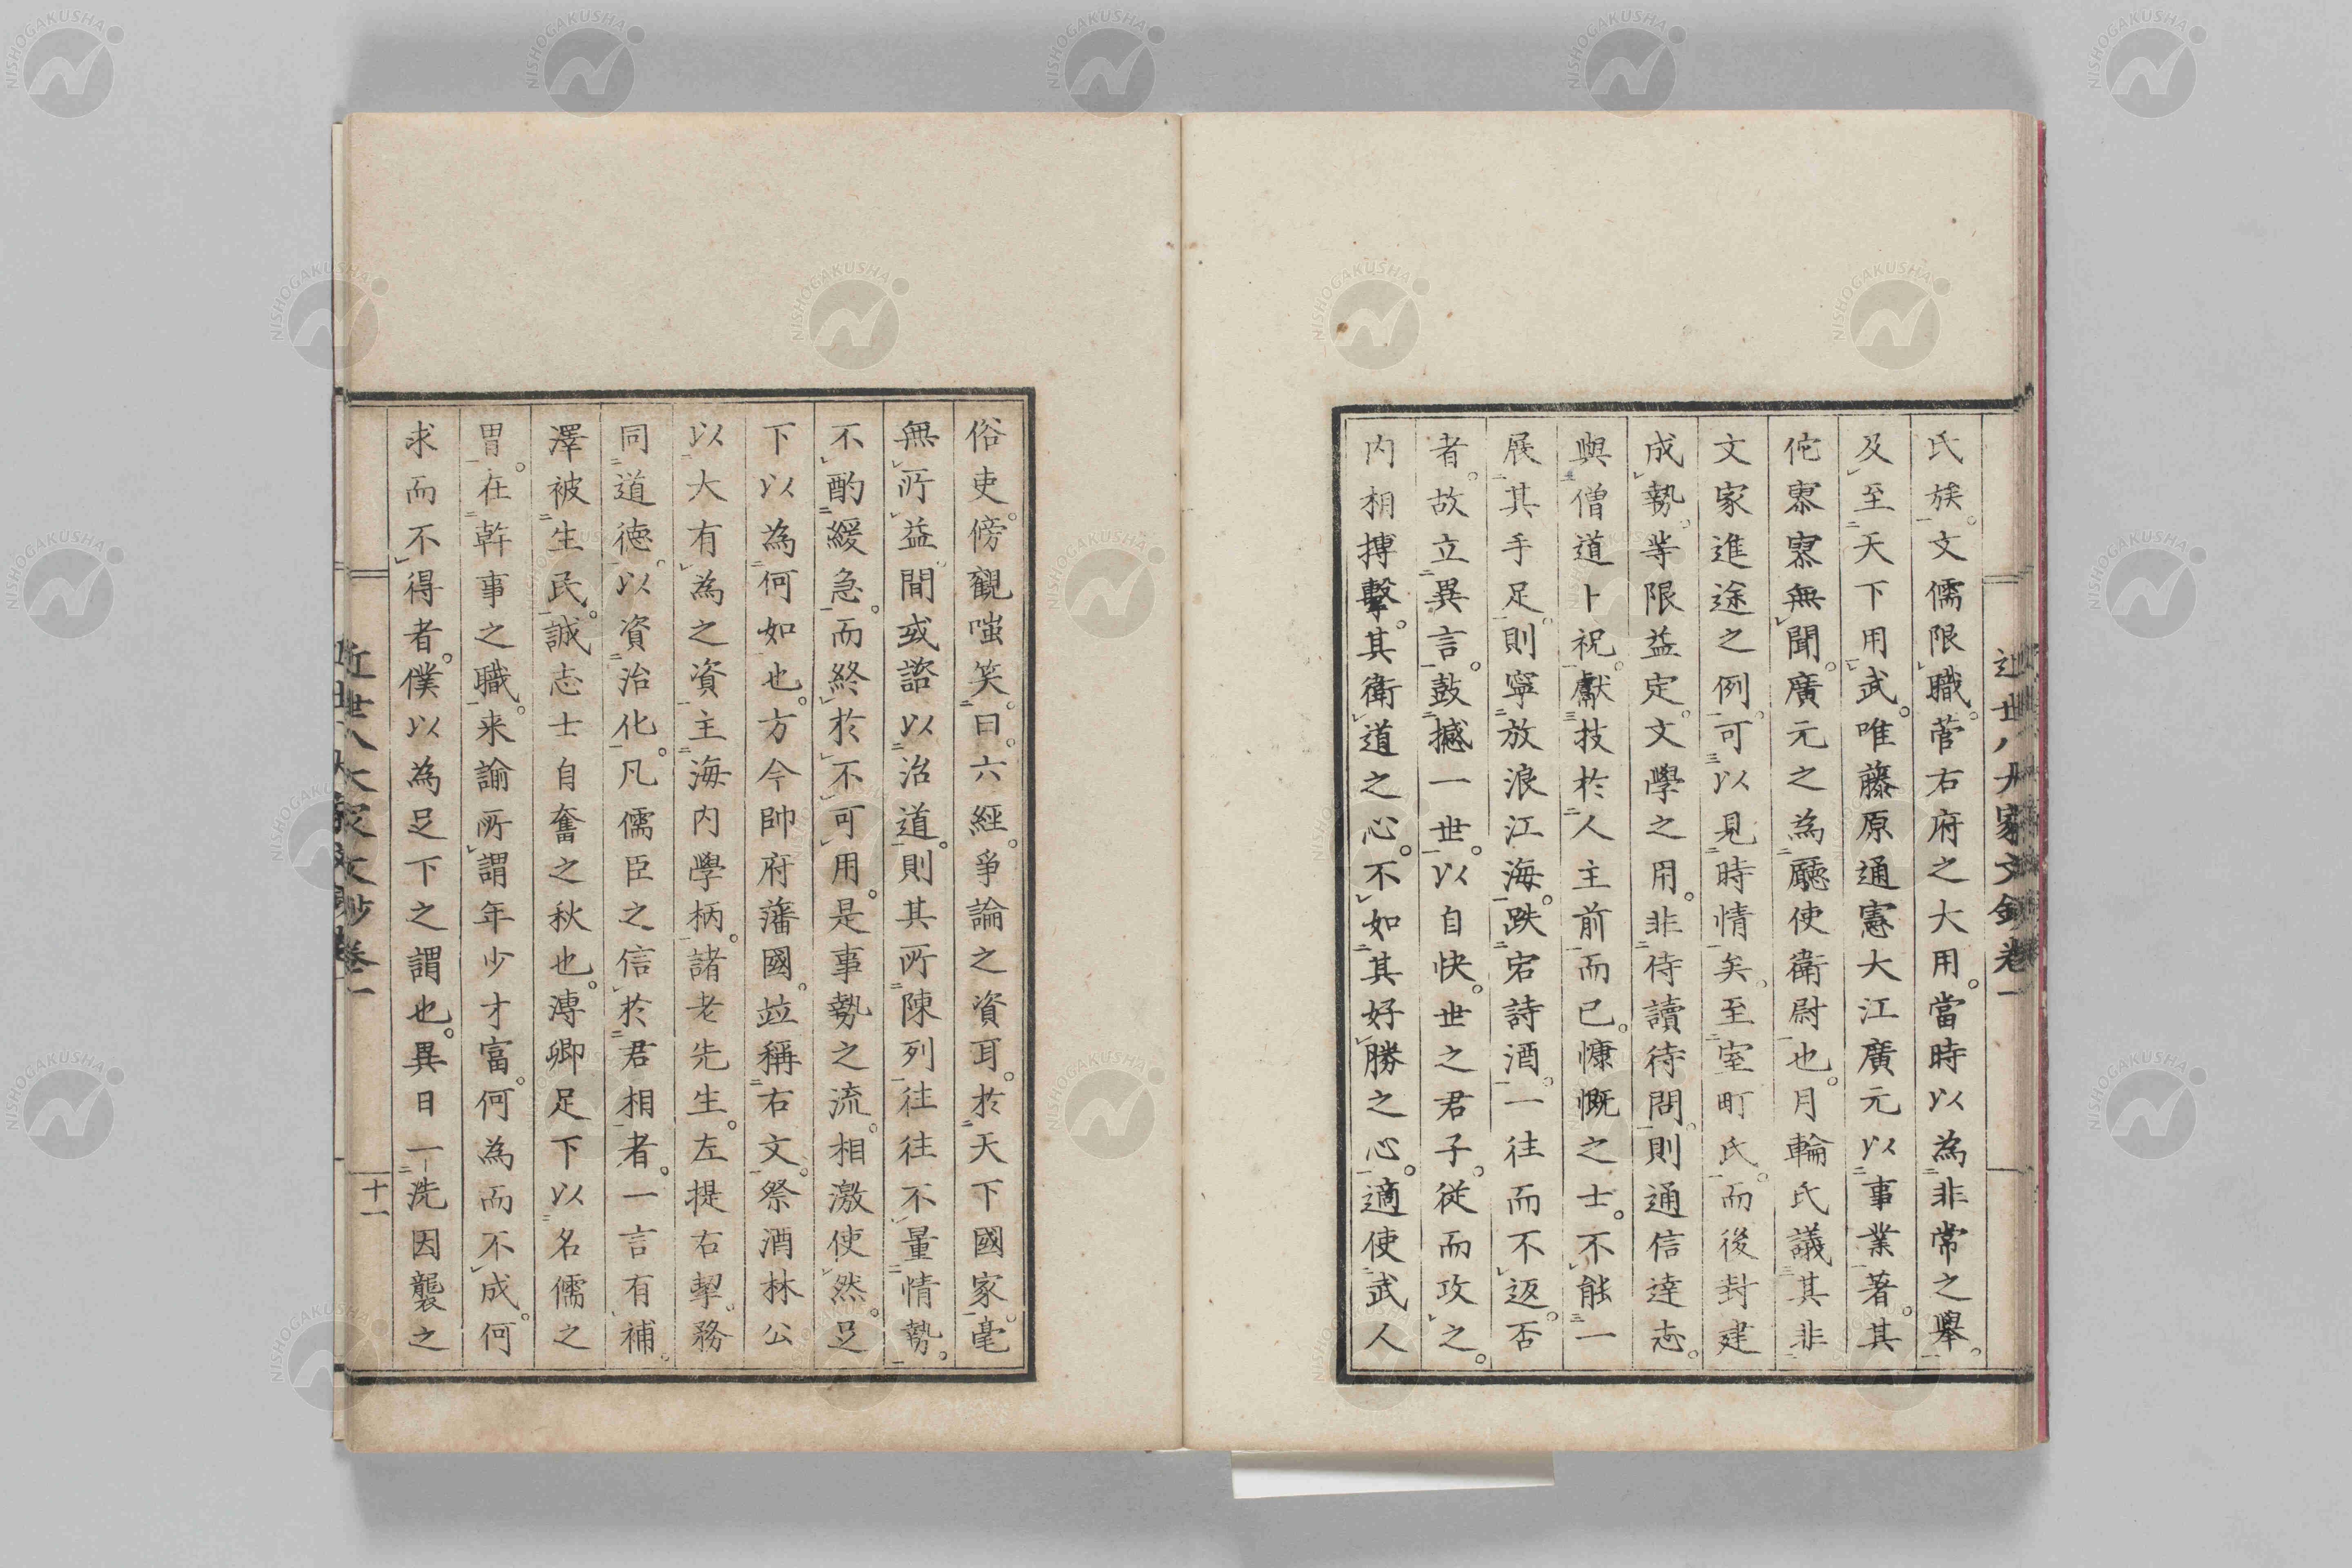 近世八大家文鈔卷一
氏族。文儒限職。菅右府之大用。當時以為非常之舉。
及至天下用武。唯藤原通憲大江廣元以事業著。其
佗寥寥無聞。廣元之為廳使衛尉也。月輪氏議其非
文家進途之例。可以見時情矣。至室町氏。而後封建
成勢。等限益定。文學之用。非待讀待問。則通信達志。
與僧道卜祝。獻技於人主前而已。慷慨之士。不能一
展其手足。則寧放浪江海。跌宕詩酒。一往而不返。否
者。故立異言。鼓撼一世。以自快。世之君子。從而攻之。
内相搏擊。其衛道之心。不如其好勝之心。適使武人
俗吏。傍觀嗤笑。曰。六經。爭論之資耳。於天下國家。毫
無所益。間或諮以治道。則其所陳列往往不量情勢。
不酌緩急。而終於不可用。是事勢之流。相激使然。足
下以為何如也。方今帥府藩國。竝稱右文。祭酒林公
以大有為之資。主海内學柄。諸老先生。左提右挈。務
同道德。以資治化。凡儒臣之信於君相者。一言有補。
澤被生民。誠志士自奮之秋也。漙卿足下以名儒之
冑。在幹事之職。来諭所謂年少才富。何為而不成。何
求而不得者。僕以為足下之謂也。異日一洗因襲之
近世八大家文鈔卷一
十一
NISHOGAKUSHA